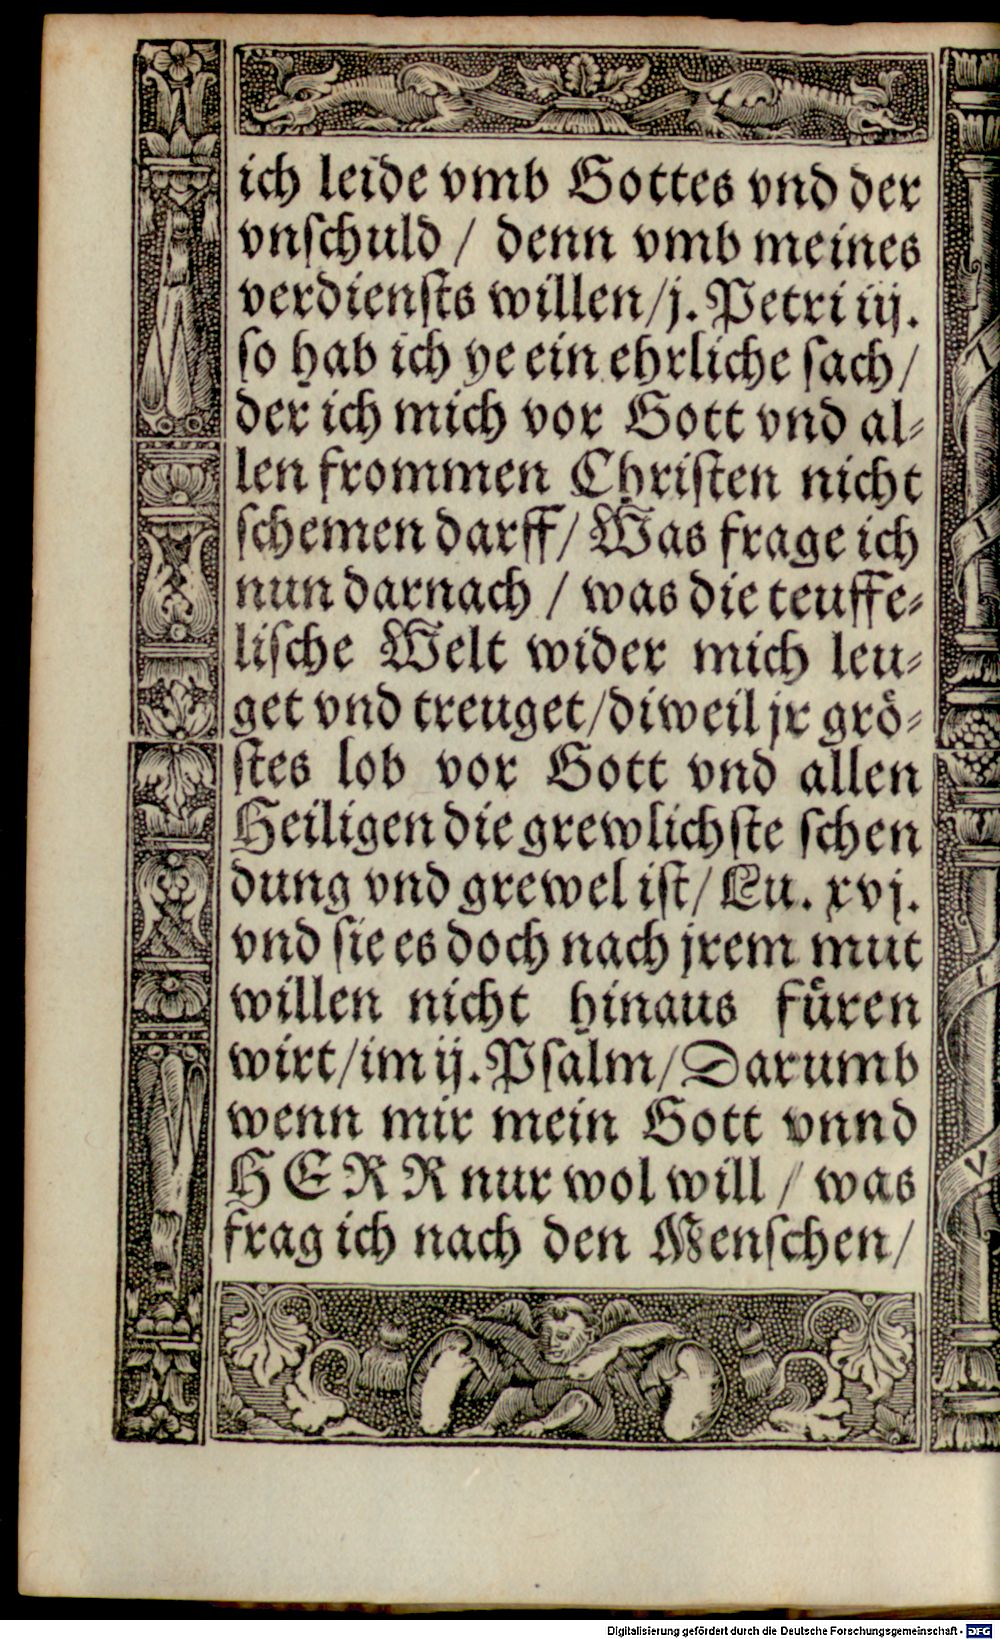 ich leide vmb Gottes vnd der
vnſchuld / denn vmb meines
verdienſts willen/j. Petri iij.
ſo hab ich ye ein ehrliche ſach/
der ich mich vor Gott vnd al⸗
len frommen Chriſten nicht
ſchemen darff/ Was frage ich
nun darnach / was die teuffe⸗
liſche Welt wider mich leu⸗
get vnd treuget/diweil jr groͤ⸗
ſtes lob vor Gott vnd allen
Heiligen die grewlichſte ſchen
dung vnd grewel iſt/ Lu. xvj.
vnd ſie es doch nach jrem mut
willen nicht hinaus fuͤren
wirt/im ij. Pſalm/ Darumb
wenn mir mein Gott vnnd
HERR nur wol will / was
frag ich nach den Menſchen/
Digitalisierung gefördert durch die Deutsche Forschungsgemeinschaft - DFG